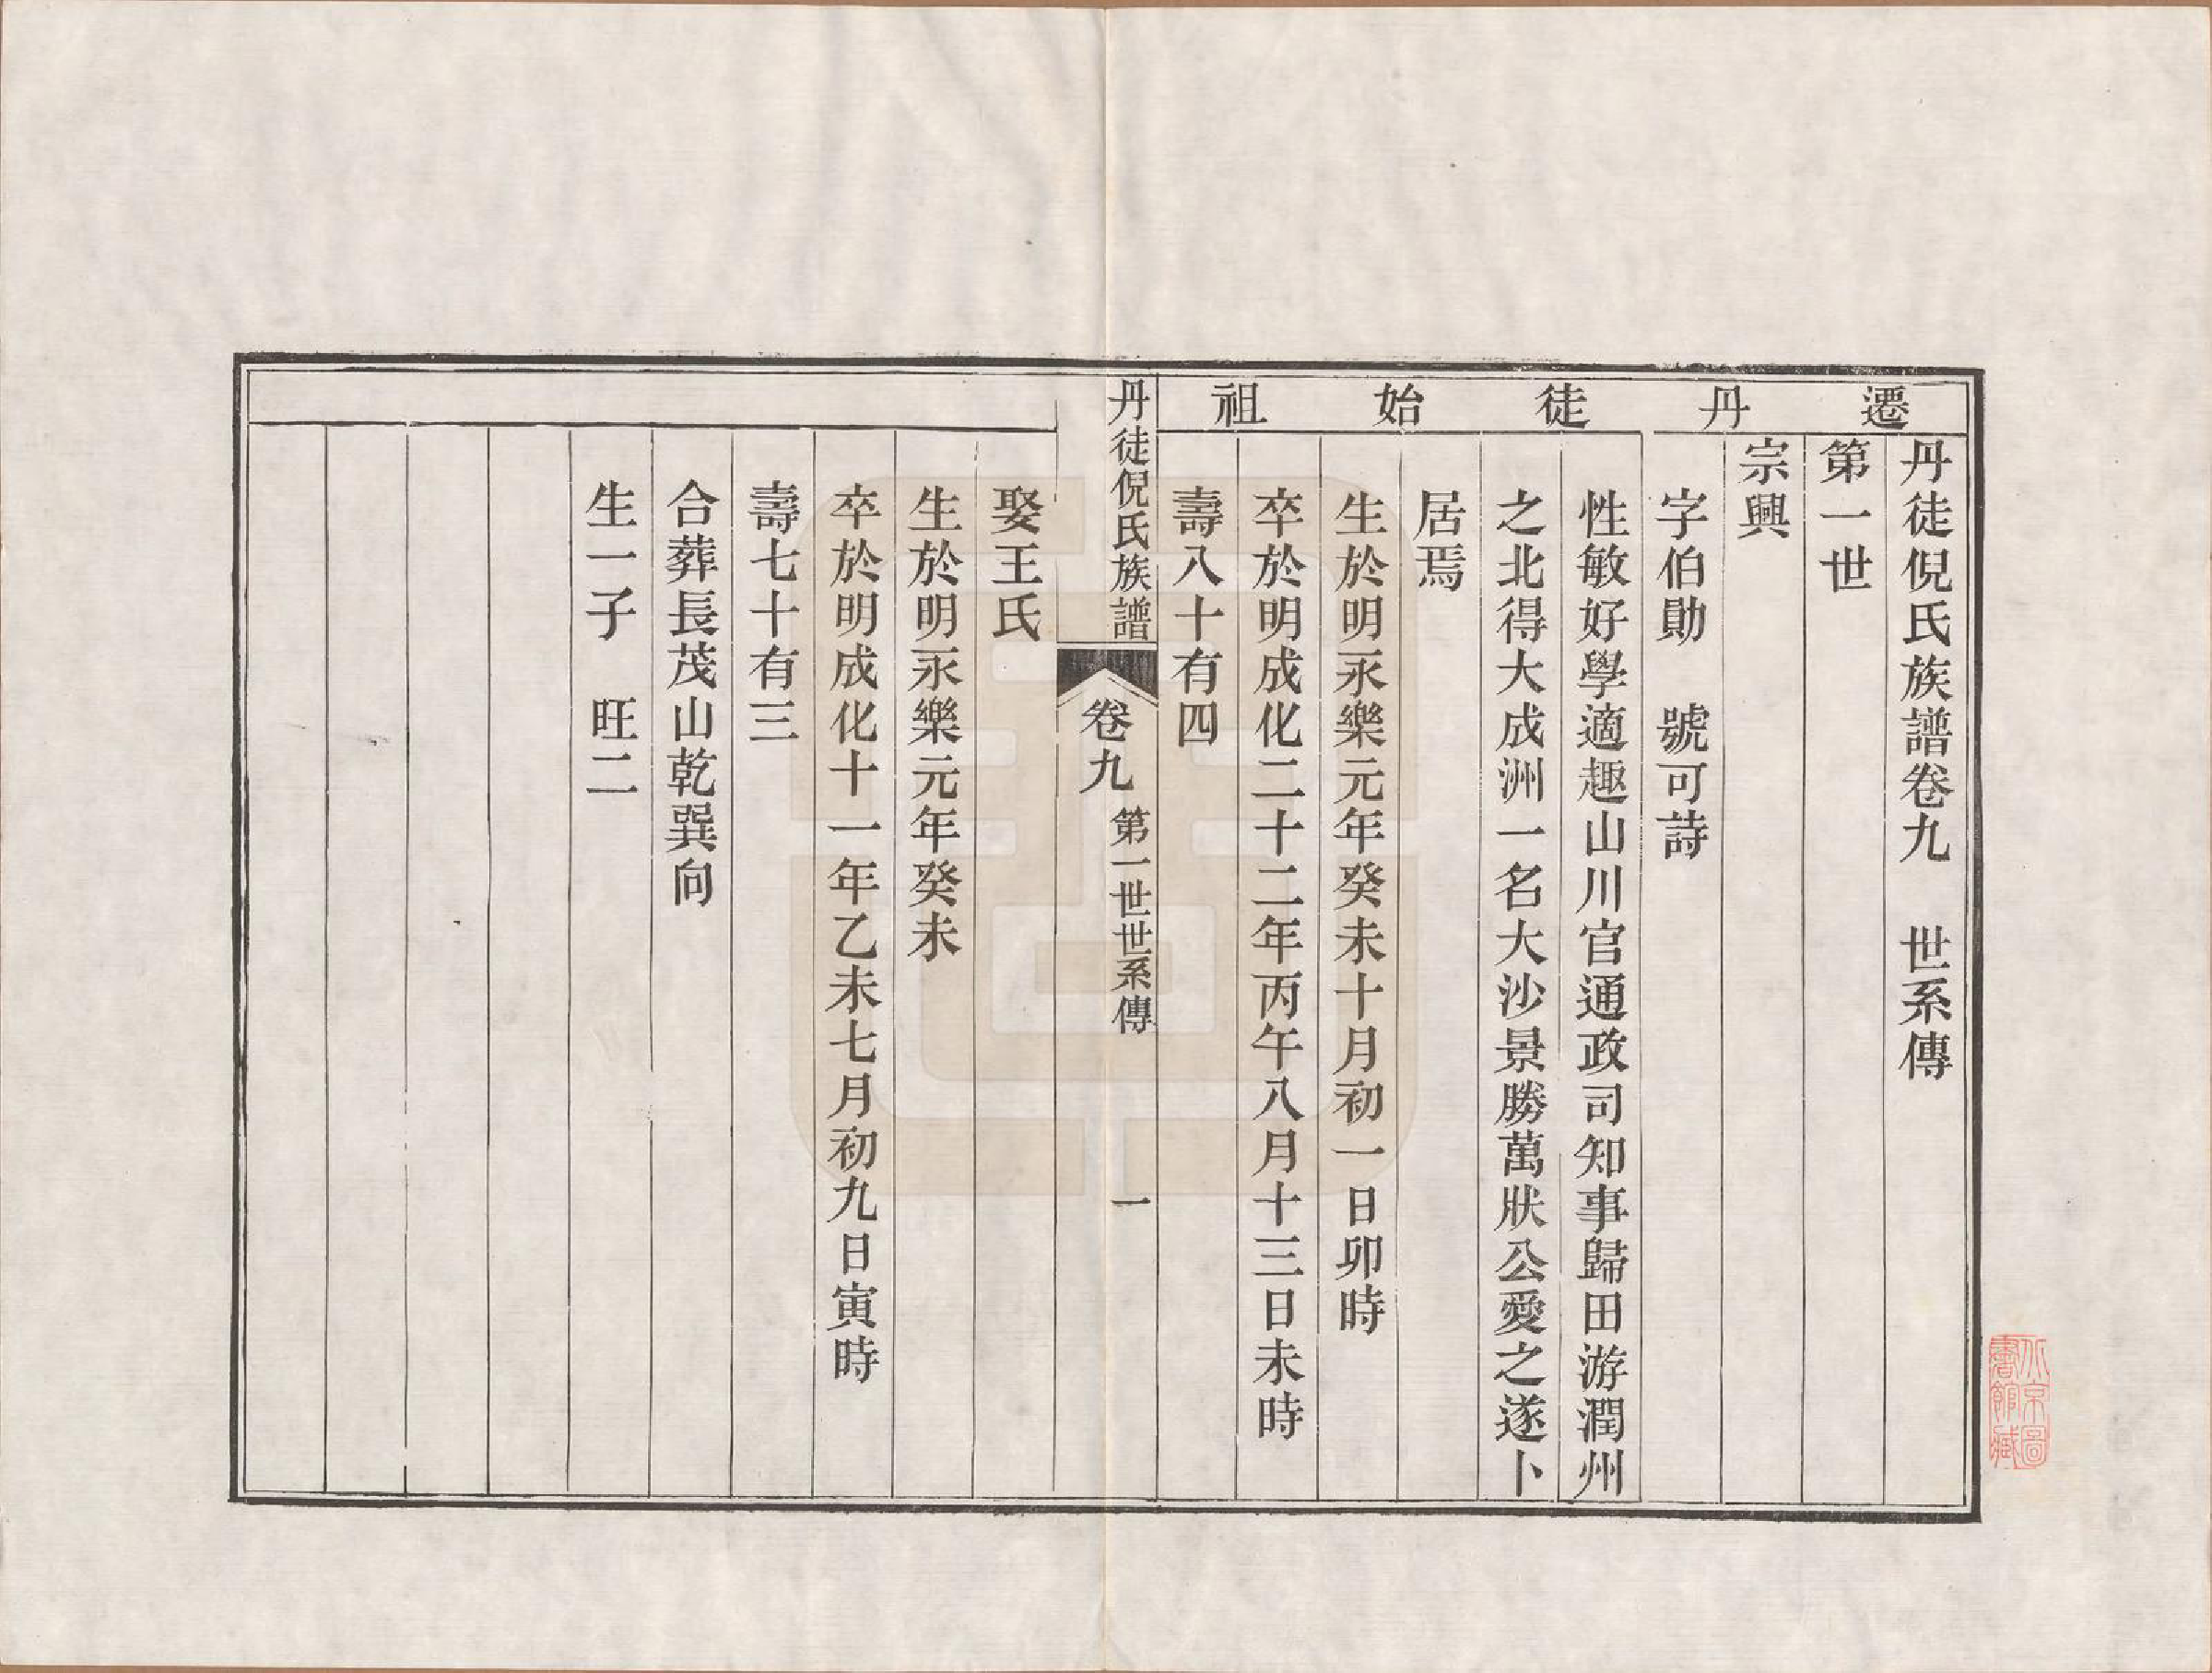 遷丹徒始祖
丹徒倪氏族譜卷九　世系傳
第一世
宗興
字伯勛　號可詩
性敏好學適趣山川官通政司知事歸田游潤州
之北得大成洲一名大沙景勝萬狀公愛之遂卜
居焉
生於明永樂元年癸未十月初一日卯時
卒於明成化二十二年丙午八月十三日未時
壽八十有四
丹徒倪氏族譜
卷九
第一世世系傳
一
娶王氏
生於明永樂元年癸未
卒於明成化十一年乙未七月初九日寅時
壽七十有三
合葬長茂山乾巽向
生一子　旺二
北京圖書館藏